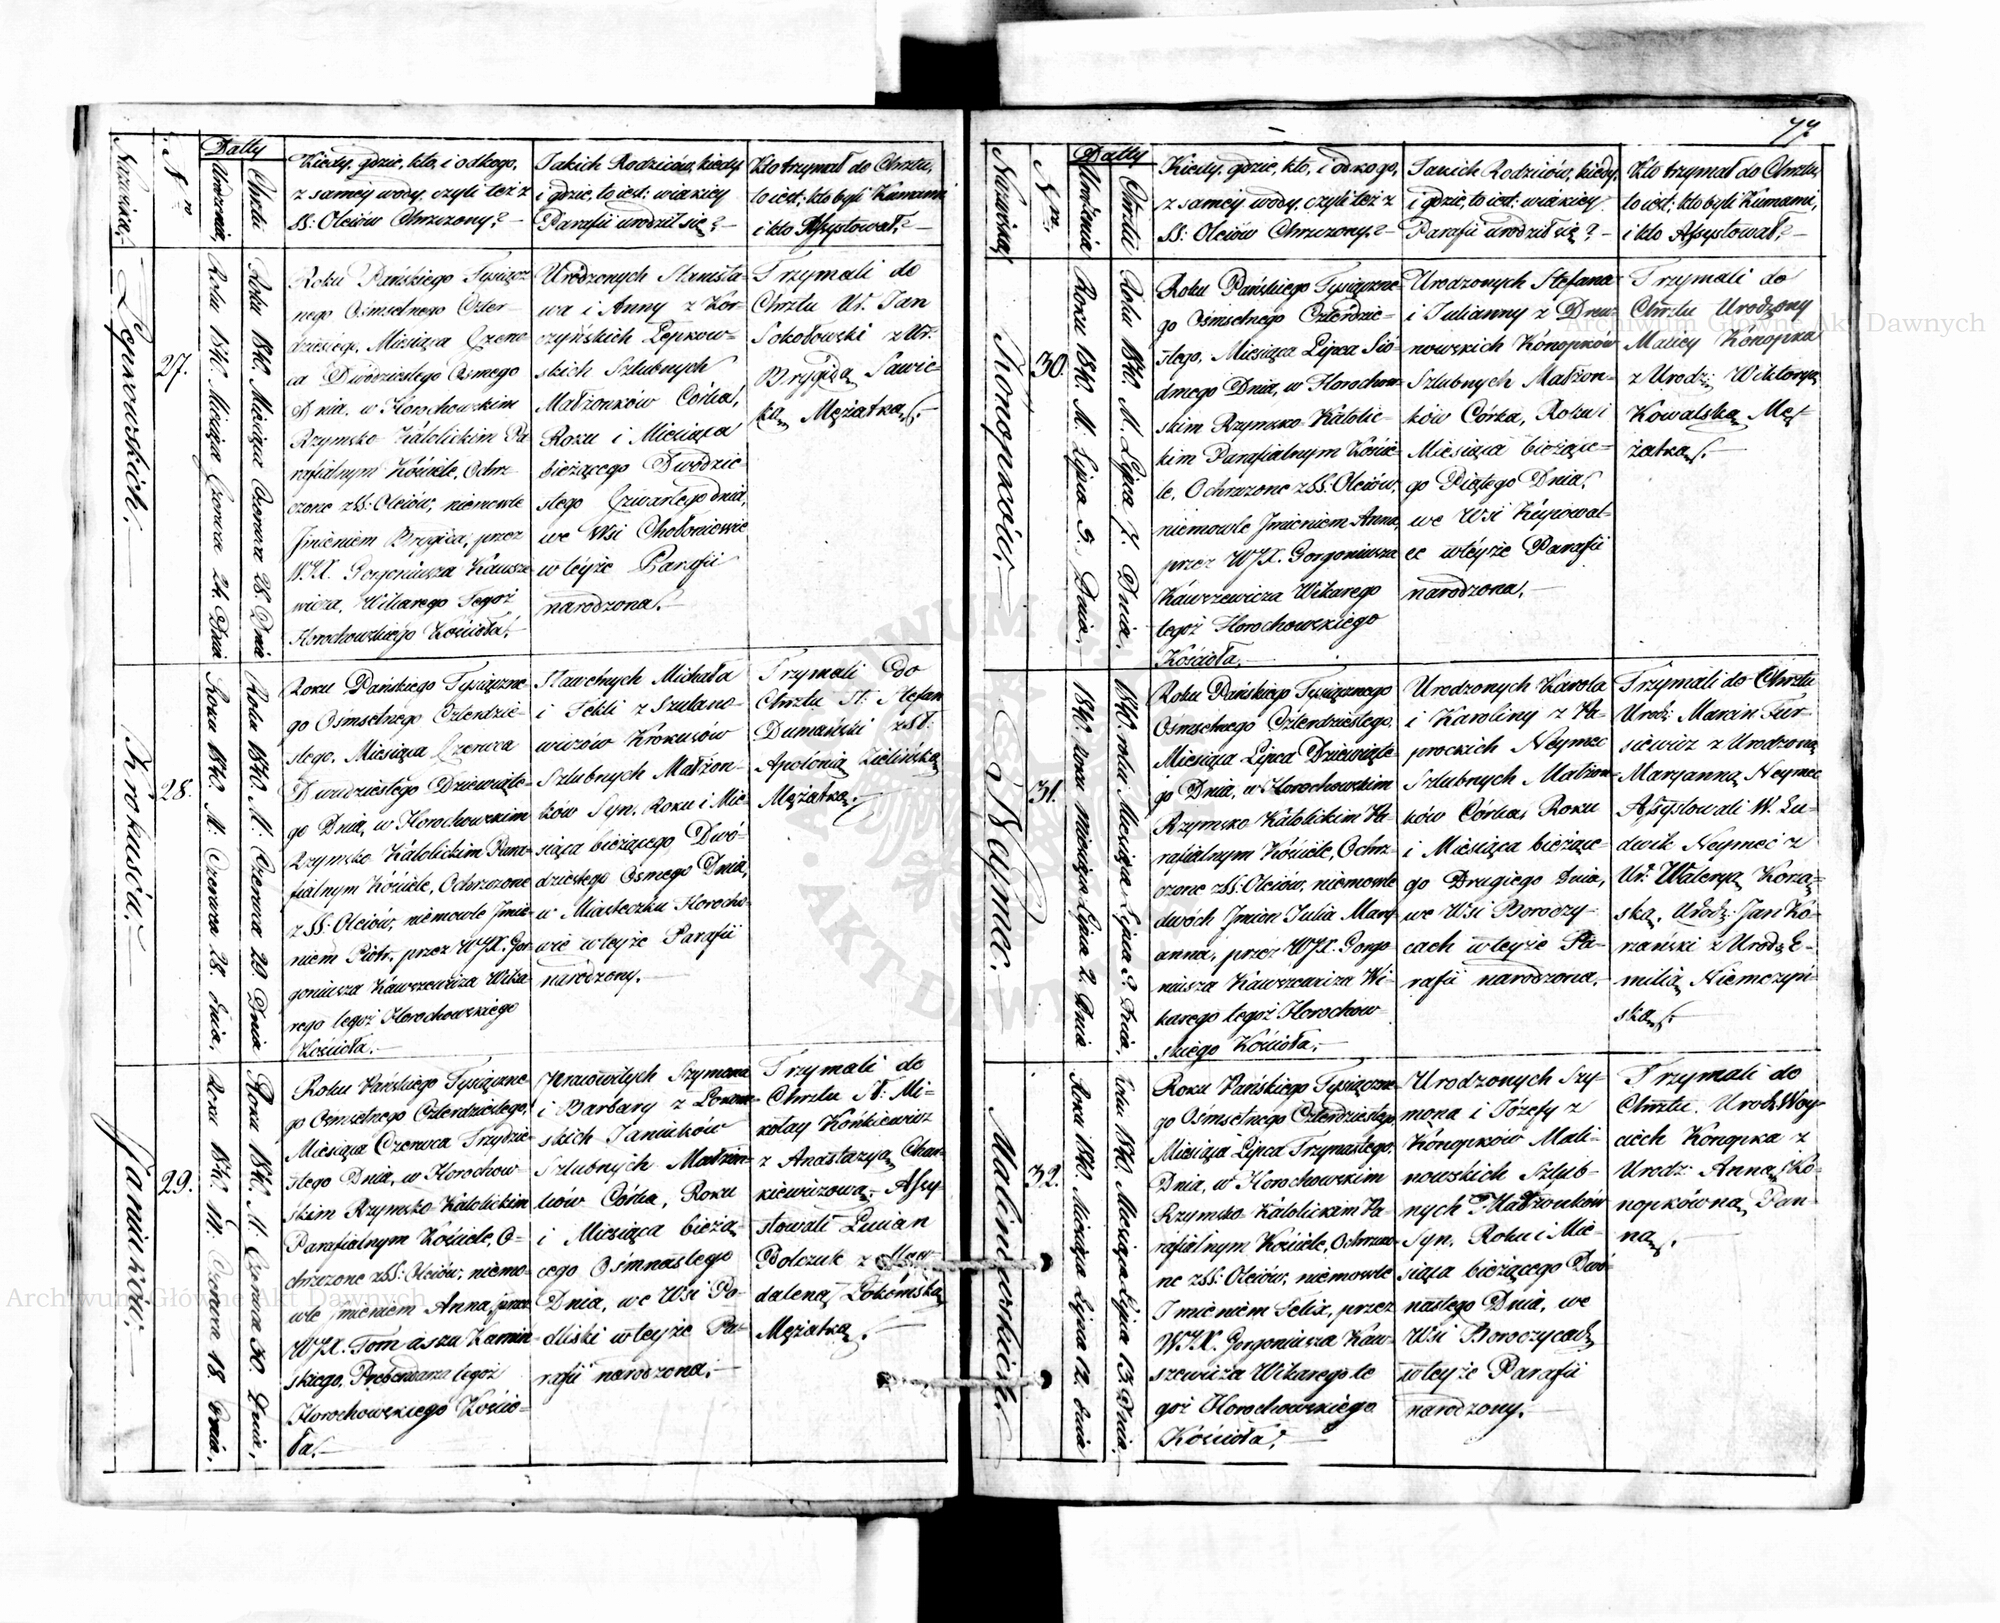 Nazwiska.
Nro
Datty
Urodzenia,
Chrztu
Kiedy, gdzie, kto, i od kogo,
z samey wody, czyli też z
SS: Oleiów Chrzczony? –
Jakich Rodziców, kiedy
i gdzie, to iest: w iakiey
Parafii urodził się? –
Kto trzymał do Chrztu,
to iest: kto byli Kumami
i kto Assystował? –
Lepkowskich. –
27.
Roku 1840. Miesiąca Czerwca 24. Dnia
Roku 1840. Miesiąca Czerwca 28. Dnia
Roku Pańskiego Tysiącz
nego Ośmsetnego Czter-
dziestego, Miesiąca Czerw
ca Dwódziestego Osmego
Dnia, w Horochowskim
Rzymsko Katolickim Pa
rafialnym Kościele, Ochrz-
czone z SS: Oleiów, niemowle
Jmieniem Brygida, przez
W.J.X. Gorgoniusza Kawsze
wicza, Wikarego tegoż
Horochowskiego Kościoła. –
Urodzonych Stanisła-
wa i Anny z Kor-
czyńskich Lepkow-
skich Szlubnych
Małżonków Córka,
Roku i Miesiąca
bieżącego Dwódzie-
stego Czwartego dnia,
we Wsi Chołoniewie
w teyże Parafii
narodzona. –
Trzymali do
Chrztu Ur. Jan
Sokołowski z Ur.
Brygidą Sawic-
ką, Mężatką. –
Krokusów. –
28.
Roku 1840. M: Czerwca 28. dnia,
Roku 1840. M: Czerwca 29. Dnia
Roku Pańskiego Tysiączne
go Ośmsetnego Czterdzie-
stego, Miesiąca Czerwca
Dwudziestego Dziewiąte-
go Dnia, w Horochowskim
Rzymsko Katolickim Para-
fialnym Kościele, Ochrzczone
z SS: Oleiów, niemowle Jmie-
niem Piotr, przez W.J.X. Gor-
goniusza Kawszewicza Wika-
rego tegoż Horochowskiego
Kościoła. –
Sławetnych Michała
i Tekli z
Krokusów
Szlubnych Małżon-
ków Syn, Roku i Mie-
siąca bieżącego Dwó-
dziestego Osmego Dnia,
w Miasteczku Horocho-
wie w teyże Parafii
narodzony. –
Trzymali do
Chrztu St: Stefan
Dumański z St:
Apolonią Zielińską
Mężatką. –
Janiuków. –
29.
Roku 1840. M: Czerwca 18. Dnia,
Roku 1840. M: Czerwca 30. Dnia,
Roku Pańskiego Tysiączne-
go Ośmsetnego Czterdziestego,
Miesiąca Czerwca Trzydzie-
stego Dnia, w Horochow-
skim Rzymsko Katolickim
Parafialnym Kościele, O-
chrzczone z SS: Oleiów, niemo-
wle Jmieniem Anna, przez
W.J.X. Tomasza Kamiń-
skiego, tegoż
Horochowskiego Kościo-
ła. –
Pracowitych Szymona
i Barbary z
skich Janiuków
Szlubnych Małżon-
ków Córka, Roku
i Miesiąca bieżą-
cego Ośmnastego
Dnia, we Wsi Po-
dliski w teyże Pa-
rafii narodzona. –
Trzymali do
Chrztu St: Mi-
kołay Końkiewicz
z Anastazyą Char-
kiewiczową. Assy-
stowali Lucian
Polczuk z Mag-
daleną
Mężatką. –
77
Nazwiska,
Nro.
Datty
Urodzenia
Chrztu
Kiedy, gdzie, kto, i od kogo,
z samey wody, czyli też z
SS: Oleiów Chrzczony? –
Jakich Rodziców, kiedy,
i gdzie, to iest: w iakiey
Parafii urodził się? –
Kto trzymał do Chrztu,
to iest: kto byli Kumami,
i kto Assystował? –
Konopków. –
30.
Roku 1840. M: Lipca 5. Dnia,
Roku 1840. M. Lipca 7. Dnia,
Roku Pańskiego Tysiączne-
go Ośmsetnego Czterdzie-
stego, Miesiąca Lipca Sió-
dmego Dnia, w Horochow-
skim Rzymsko Katolic-
kim Parafialnym Kościе-
le, Ochrzczone z SS: Oleiów,
niemowle Jmieniem Anna,
przez W.J.X. Gorgoniusza
Kawszewicza Wikarego
tegoż Horochowskiego
Kościoła. –
Urodzonych Stefana
i Julianny z Drew-
nowskich Konopków
Szlubnych Małżon-
ków Córka, Roku i
Miesiąca bieżące-
go Piątego Dnia,
we Wsi
w teyże Parafii
narodzona. –
Trzymali do
Chrztu Urodzony
Maciey Konopka
z Urodz: Wiktoryą
Kowalską Mę-
żatką. –
Neymec. –
31.
1840. roku miesiąca Lipca 2. Dnia
1840. roku Miesiąca Lipca 9. Dnia,
Roku Pańskiego Tysiącznego
Ośmsetnego Czterdziestego,
Miesiąca Lipca Dziewiąte-
go Dnia, w Horochowskim
Rzymsko Katolickim Pa-
rafialnym Kościele, Ochrz-
czone z SS: Oleiów, niemowle
dwóch Jmion Julia Mary-
anna, przez W.J.X. Gorgo-
niusza Kawszewicza Wi-
karego tegoż Horochow-
skiego Kościoła. –
Urodzonych Karola
i Karoliny z Pa-
prockich Neymec
Szlubnych Małżon-
ków Córka, Roku
i Miesiąca bieżące-
go Drugiego Dnia,
we Wsi Boroczy-
cach w teyże Pa-
rafii narodzona. –
Trzymali do Chrztu
Urodz: Marcin Jur-
siewicz z Urodzoną
Maryanną Neymec
Assystowali W. Lu-
dwik Neymec z
Ur: Waleryą Korza-
ską, Urodz: Jan Ko-
rzański z Urodz: E-
milią Niemczyń-
ską. –
Malinowskich. –
32.
Roku 1840. Miesiąca Lipca 12. dnia
roku 1840. Miesiąca Lipca 13. Dnia,
Roku Pańskiego Tysiączne
go Ośmsetnego Czterdziestego,
Miesiąca Lipca Trzynastego,
Dnia, w Horochowskim
Rzymsko Katolickim Pa-
rafialnym Kościele, Ochrzczo-
ne z SS: Oleiów, niemowle
Jmieniem Felix, przez
W.J.X. Gorgoniusza Kaw-
szewicza Wikarego te
goż Horochowskiego
Kościoła. –
Urodzonych Szy-
mona i Józefy z
Konopków Mali-
nowskich Szlub-
nych Małżonków
Syn, Roku i Mie-
siąca bieżącego Dwu-
nastego Dnia, we
Wsi Boroczycach
w teyże Parafii
narodzony. –
Trzymali do
Chrztu Urodz: Woy-
ciech Konopka z
Urodz: Anną Ko-
nopkówną Pan-
ną. –
Archiwum Główne Akt Dawnych
Archiwum Główne Akt Dawnych